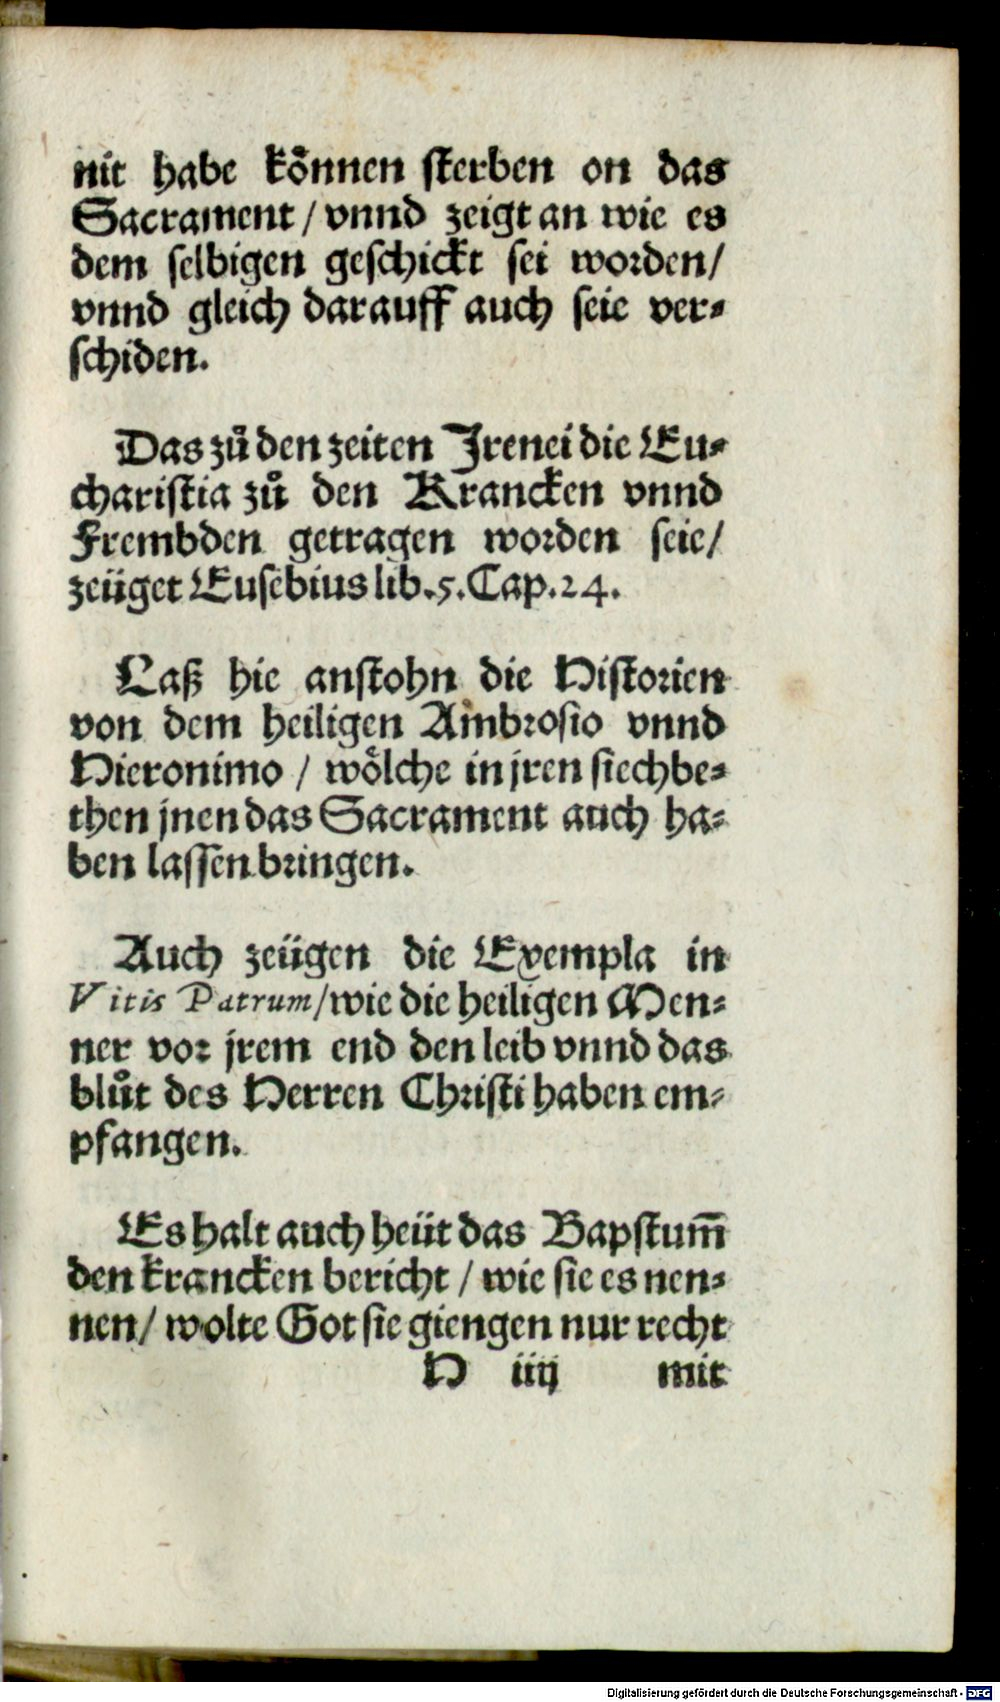 nit habe koͤnnen ſterben on das
Sacrament / vnnd zeigt an wie es
dem ſelbigen geſchickt ſei worden/
vnnd gleich darauff auch ſeie ver⸗
ſchiden.
Das zuͦ den zeiten Jrenei die Eu⸗
chariſtia zuͦ den Krancken vnnd
Frembden getragen worden ſeie/
zeüget Euſebius lib.5.Cap.24.
Laß hie anſtohn die Hiſtorien
von dem heiligen Ambroſio vnnd
Hieronimo / woͤlche in jren ſiechbe⸗
then jnen das Sacrament auch ha⸗
ben laſſen bringen.
Auch zeügen die Exempla in
Vitis Patrum/wie die heiligen Men⸗
ner vor jrem end den leib vnnd das
bluͦt des Herren Chriſti haben em⸗
pfangen.
Es halt auch heüt das Bapſtum̄
den krancken bericht / wie ſie es nen⸗
nen/ wolte Got ſie giengen nur recht
H iiij mit
Digitalisierung gefördert durch die Deutsche Forschungsgemeinschaft - DFG